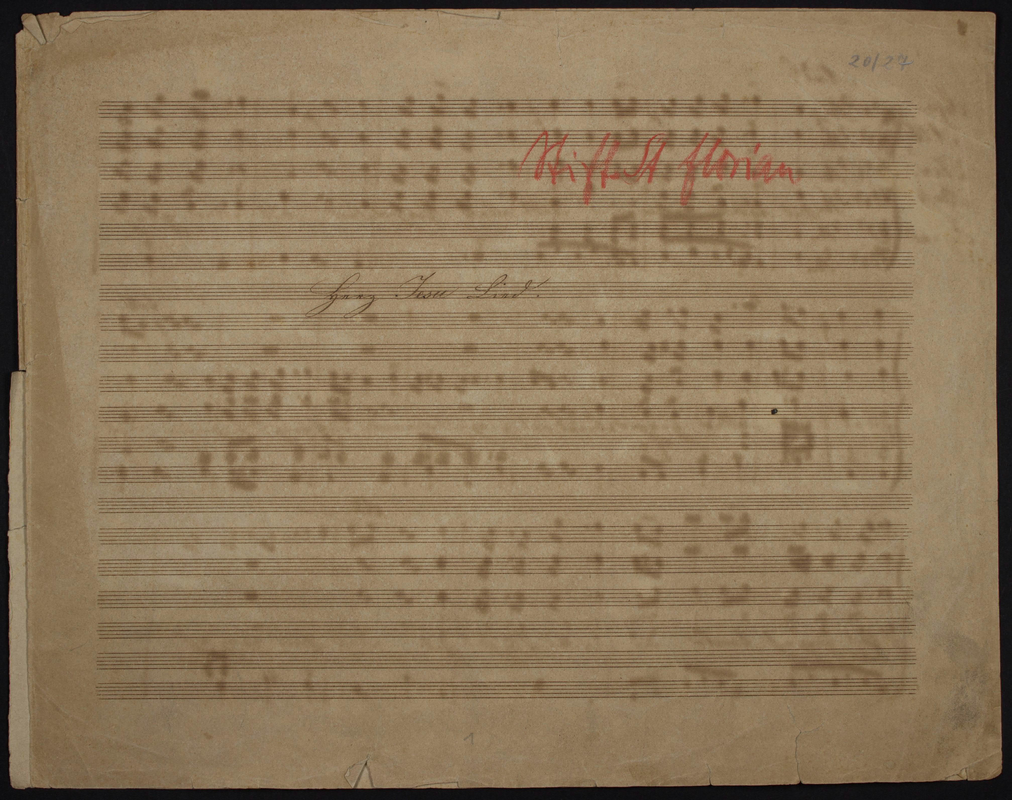 20/27
Stift St florian
Herz Jesu Lied.
1